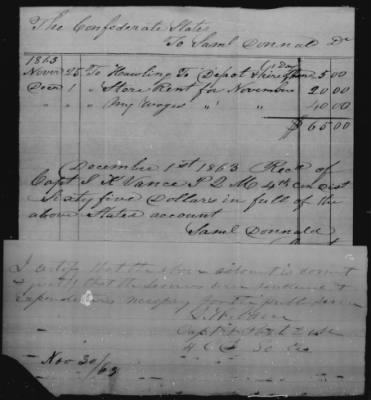 The Confederate States
To Saml Donnald Dr
1863
Novr 25 To Hawling To Depot 1 Day 5 00
Decr 1 " Store Rent for November 20 00
" " My Wages " " 40 00
$ 65.00
December 1st 1863 Recd of
Capt Vance P Q M 4th Con Dist
Sixty five Dollars in full of the
above States account
Saml Donnald
I certify that the above account is correct
& just that the services were rendered &
Expenditures for the public service
Capt
4 C So Ca
Nov 30/63